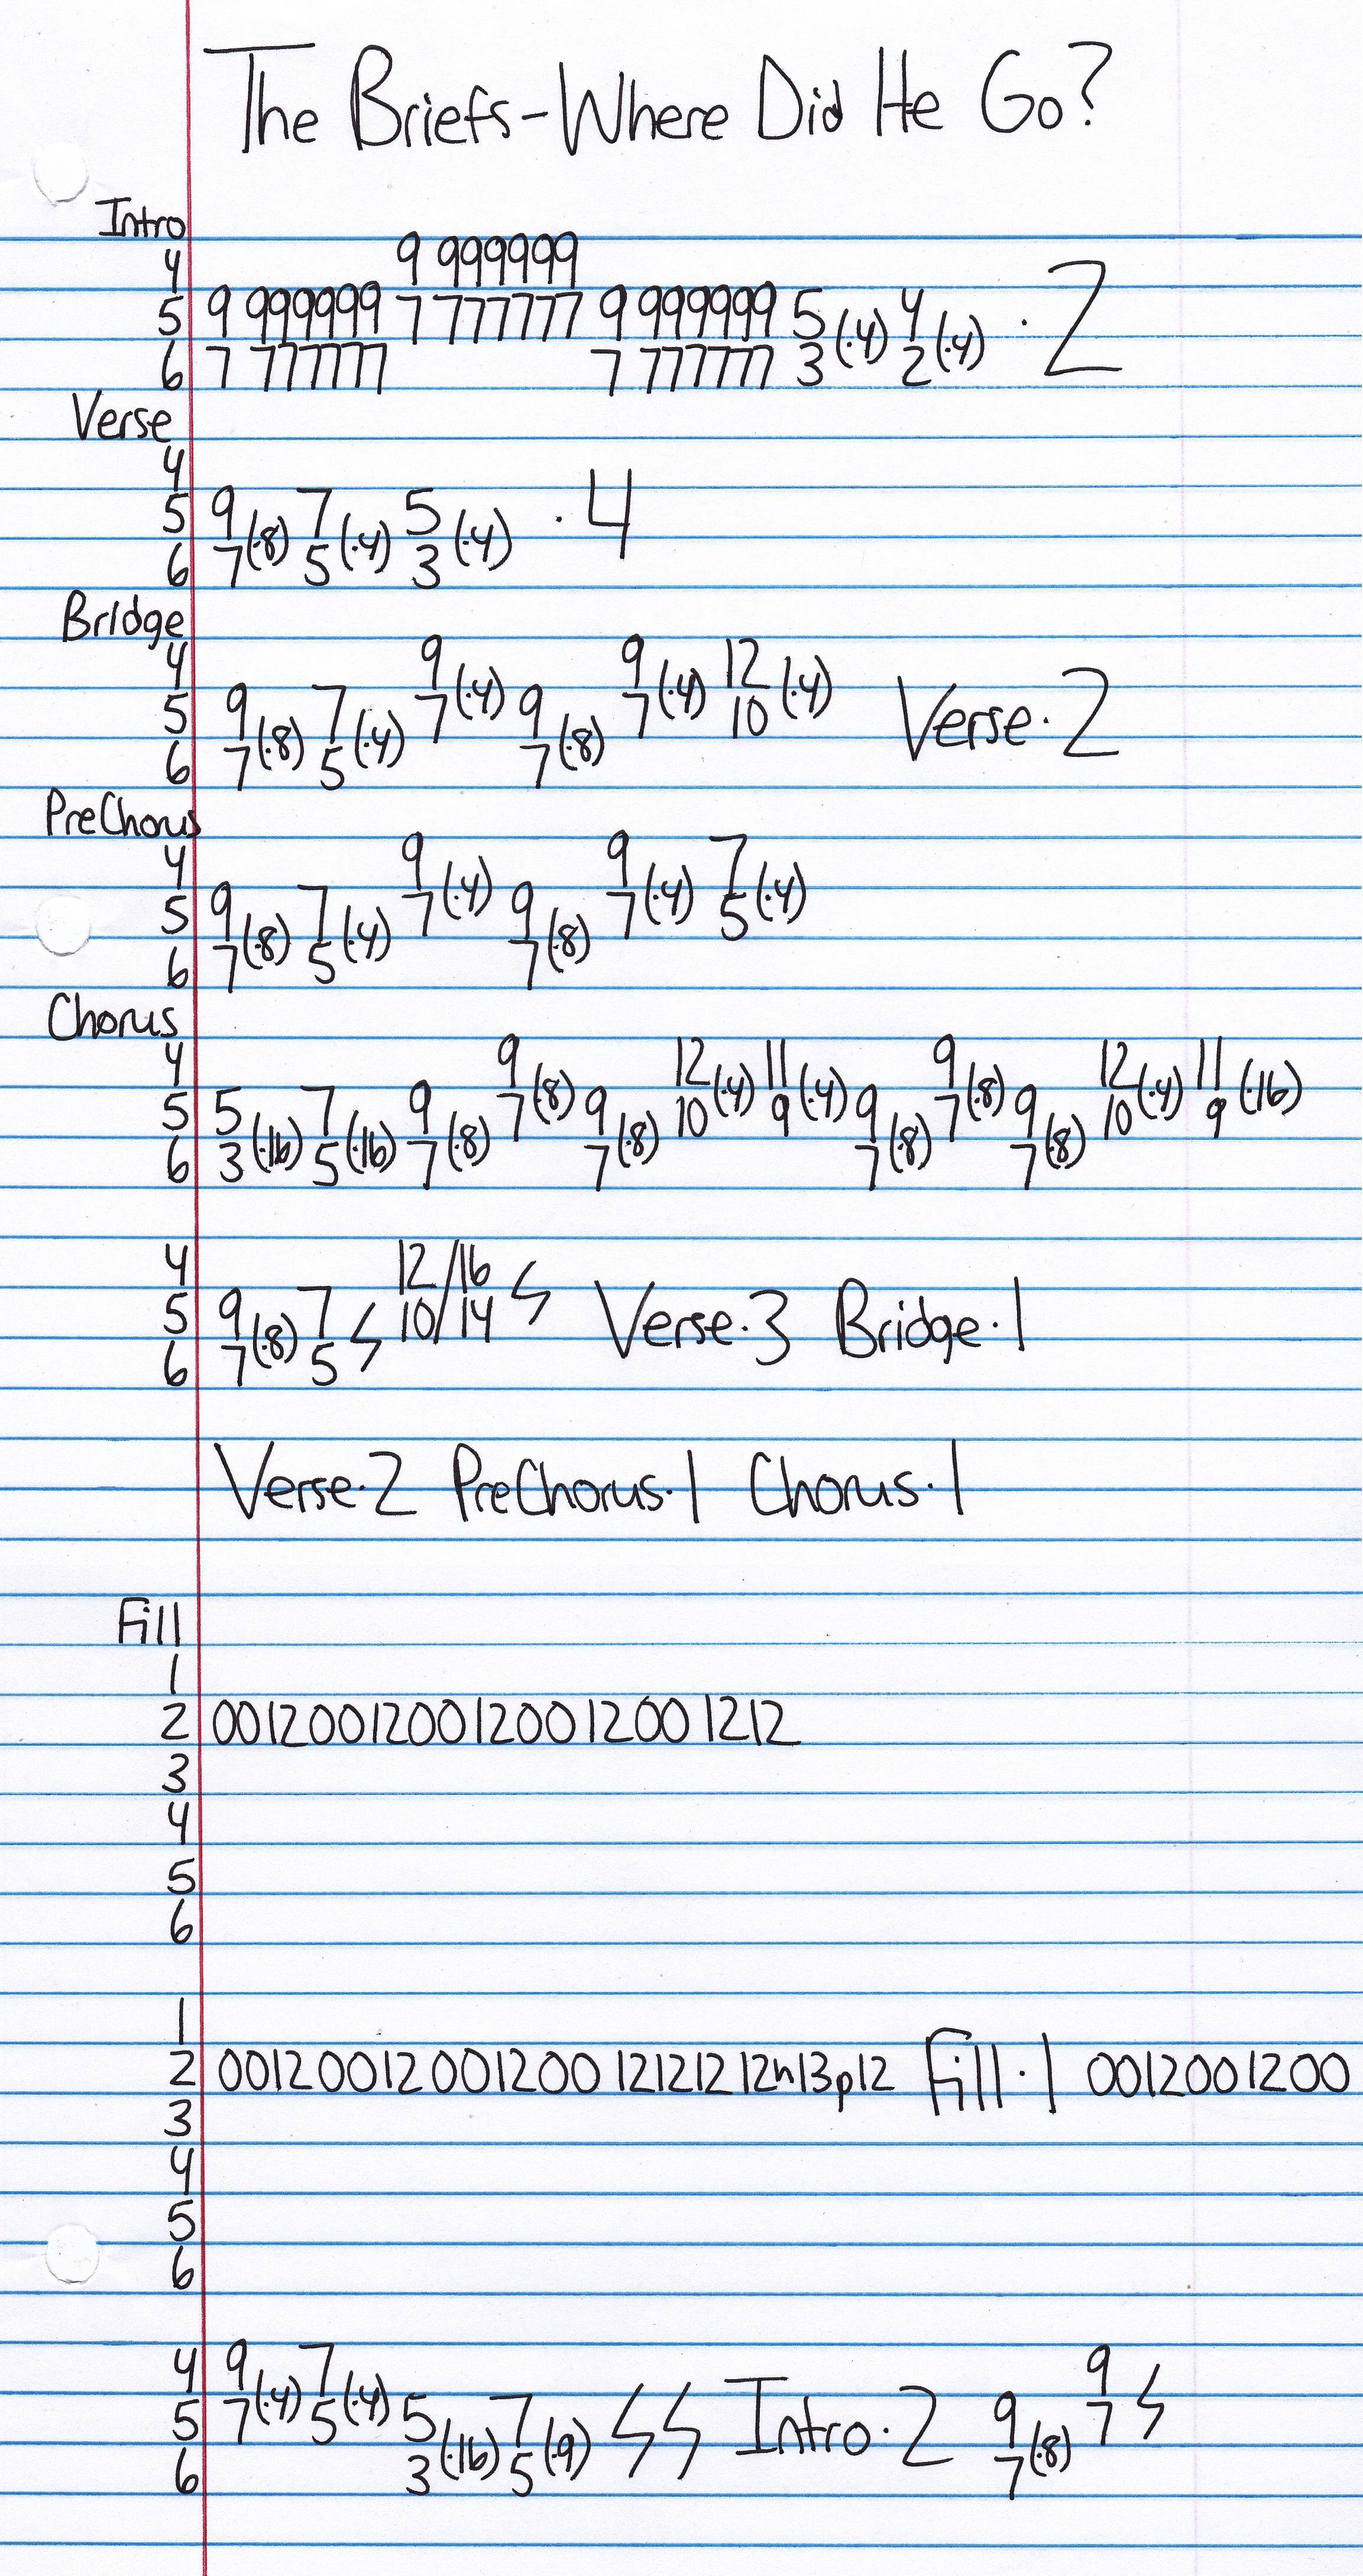 The Briefs-Where Did He Go?
Intro
4 9 999999
5 9 999999 7 777777 9 999999 5(·4) 4(·4) · 2
6 7 777777 7 777777 3 2
Verse
4
5 9(·8) 7(·4) 5(·4) · 4
6 7 5 3
Bridge
4 9(·4) 9(·4) 12(·4)
5 9(·8) 7(·4) 7 9(·8) 7 10 Verse·2
6 7 5 7
PreChorus
4 9(·4) 9(·4) 7(·4)
5 9(·8) 7(·4) 7 9(·8) 7 5
6 7 5 7
Chorus
4 9(·8) 12(·4) 11(·4) 9(·8) 12(·4) 11(·16)
5 5(·16) 7(·16) 9(·8) 7 9(·8) 10 9 9(·8) 7 9(·8) 10 9
6 3 5 7 7 7 7
4 12/16
5 9(·8) 7 10/14 Verse·3 Bridge·1
6 7 5
Verse·2 PreChorus·1 Chorus·1
Fill
1
2 001200120012001200 1212
3
4
5
6
1
2 00120012001200 121212 12h13p12 Fill·1 0012001200
3
4
5
6
4 9(·4) 7(·4) 9
5 7 5 5(·16) 7(·9) Intro·2 9(·8) 7
6 3 5 7